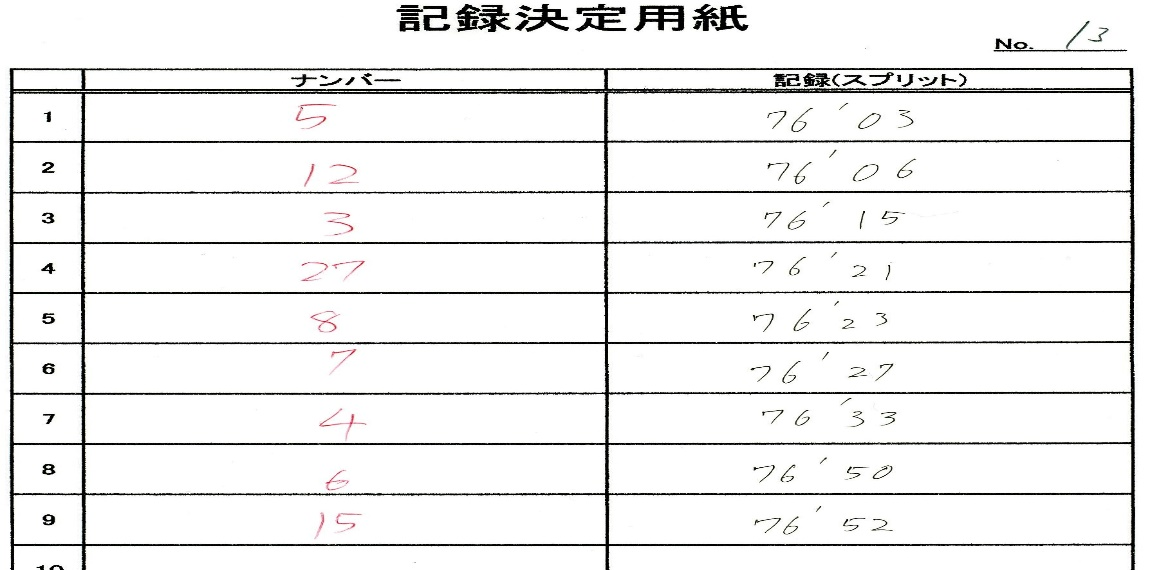 記録決定用紙
No. 13
ナンバー 記録(スプリット)
1 5 76' 03
2 12 76' 06
3 3 76' 15
4 27 76' 21
5 8 76' 23
6 7 76' 27
7 4 76' 33
8 6 76' 50
9 15 76' 52
10